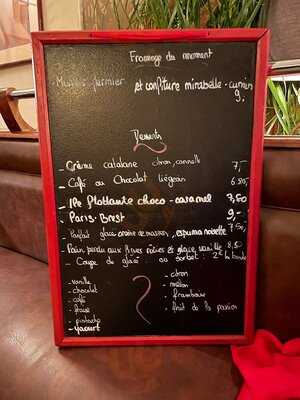 Fromage du moment
Munster fermier et confiture mirabelle - cumin
9,-
Desserts
- Crème catalane citron, cannelle 7,-
- Café ou Chocolat liégeois 6.50,-
- Ile flottante choco - caramel 7,50
- Paris-Brest 9,-
- Parfait glacé maison, espuma noisette 7.50,-
- Pain perdu aux rôties et glace vanille 8,50
- Coupe de glace ou sorbet : 2€ la boule
- vanille
- chocolat
- café
- fraise
- pistache
- yaourt
- citron
- melon
- framboise
- fruit de la passion